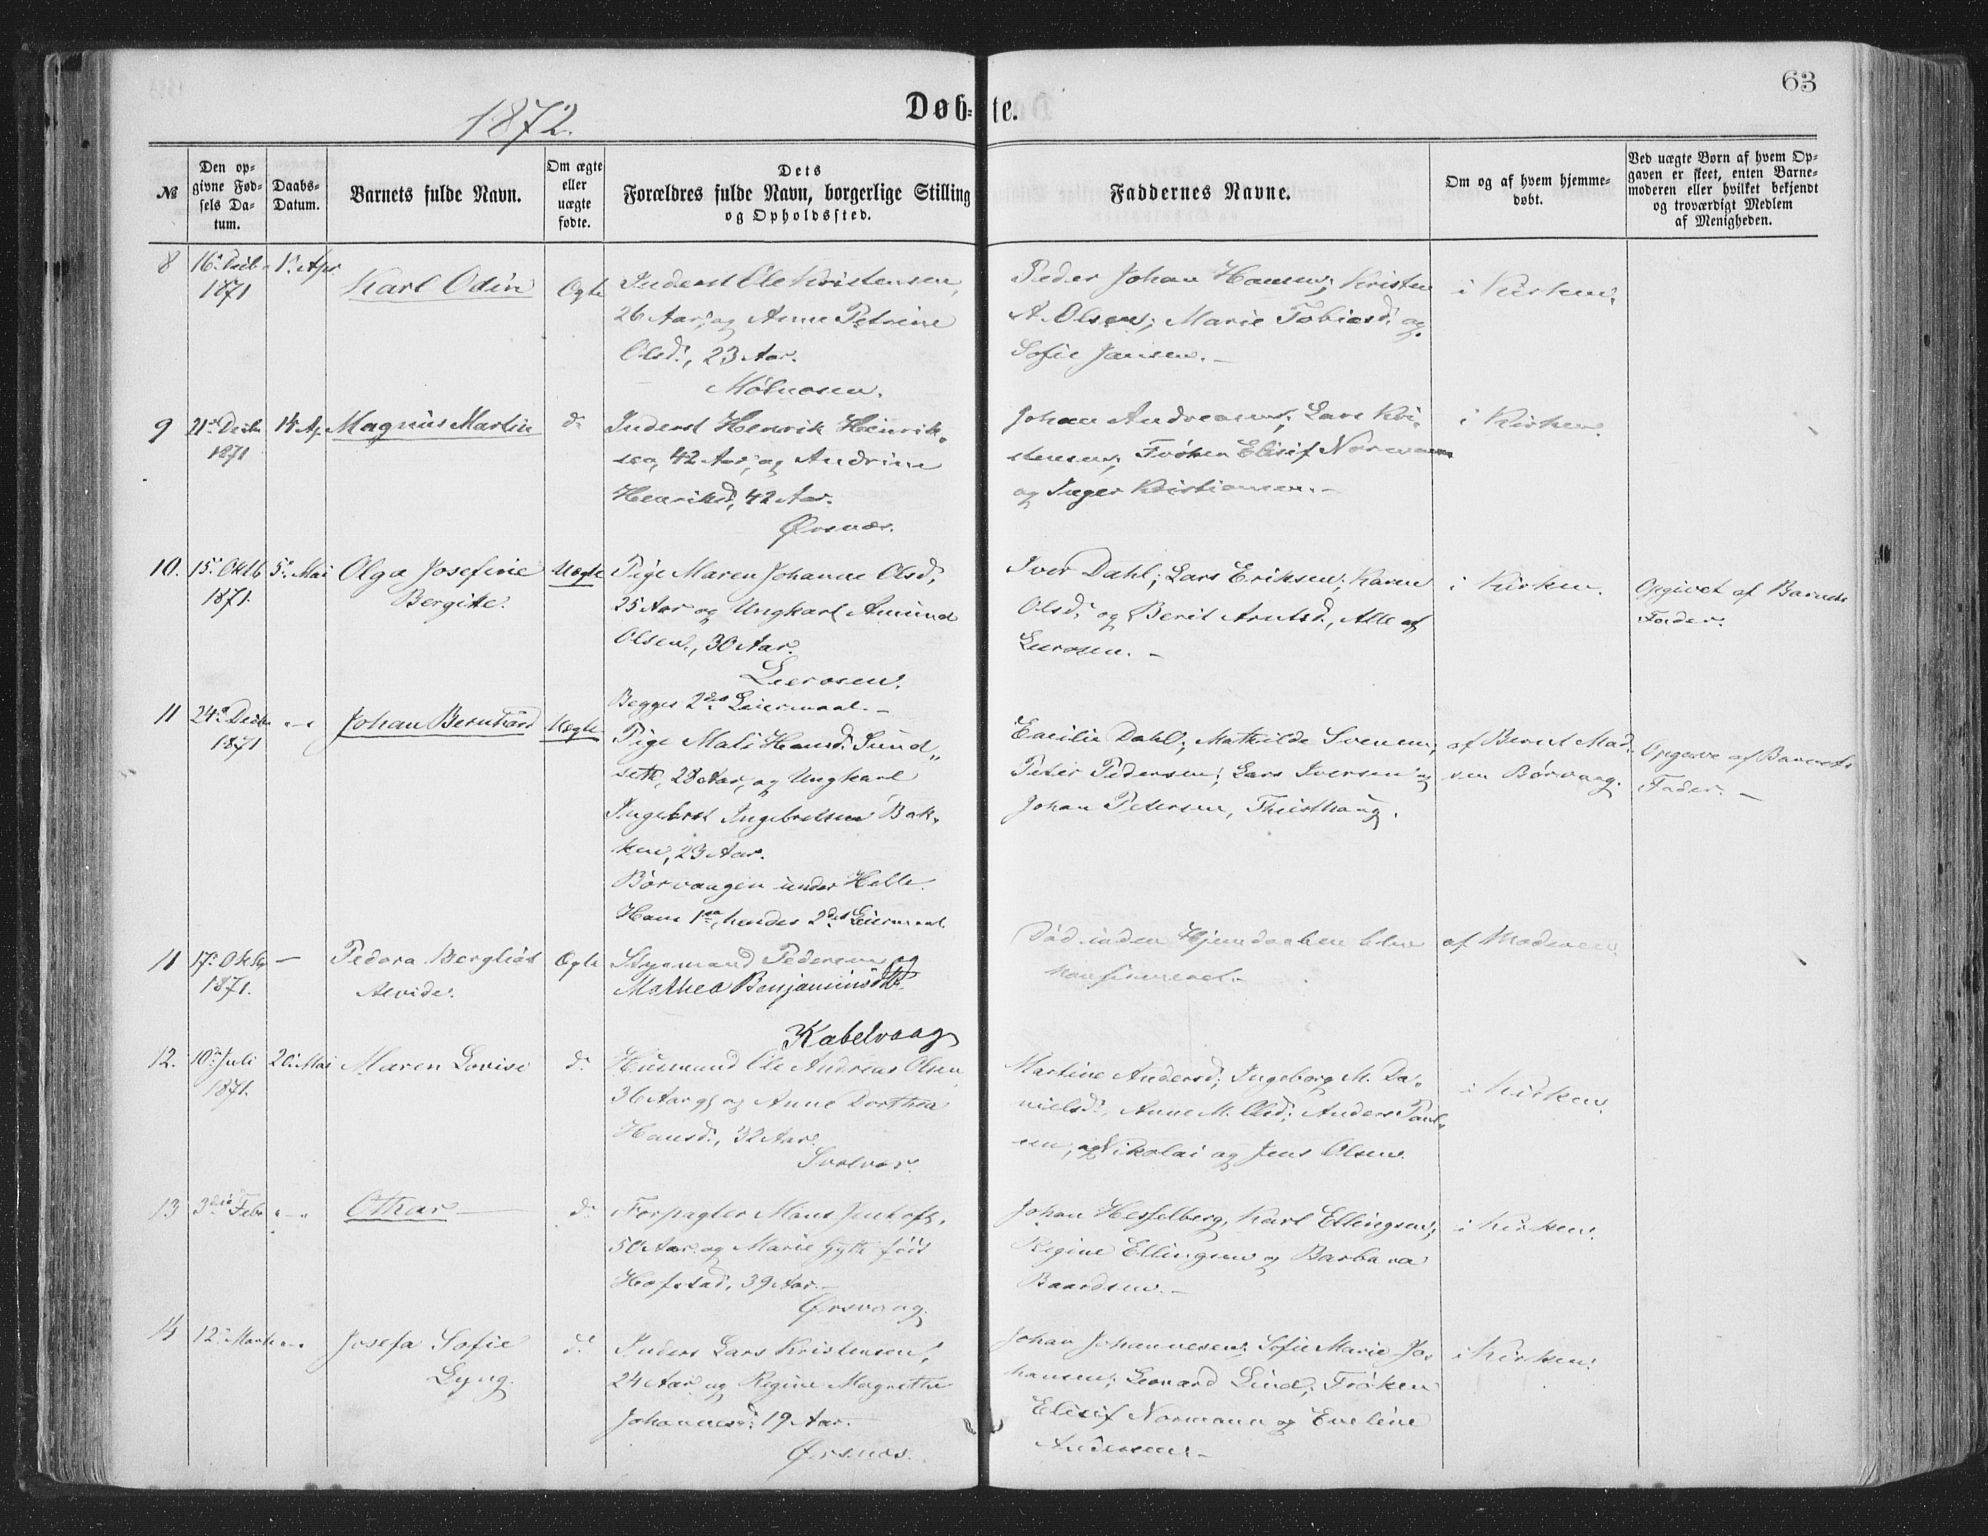 63
1872.
Døb-te.
№
Den op-
givne Fød-
sels Da-
tum.
Daabs-
Datum.
Barnets fulde Navn.
Om ægte
eller
uægte
fødte.
Dets
Forældres fulde Navn, borgerlige Stilling
og Opholdssted.
Faddernes Navne.
Om og af hvem hjemme-
døbt.
Ved uægte Børn af hvem Op-
gaven er skeet, enten Barne-
moderen eller hvilket bekjendt
og troværdigt Medlem
af Menigheden.
8
1871
Karl Odin
Ægte
Inderst Ole Kristensen,
26 Aar, og Anne Petrine
Olsd., 23 Aar.
Mølnosen.
Peder Johan Hansen; Kristen
A. Olsen; Marie Tobiasd. og
Sofie Jansen.
i Kirken.
9
1871
Magnus Martin
d.
Inderst Henrik Henrik-
sen, 42 Aar, og Andrine
Henriksd., 42 Aar.
Ørsnæs.
Johan Andreasen; Lars Kri-
stensen; Frøken Elisif Normann
og Inger Kristiansen.
i Kirken.
10.
15. Oktb
1871.
5. Mai
Olga Josefine
Bergitte.
Uægte
Pige Maren Johanne Olsd,
25 Aar og Ungkarl Amund
Olsen, 30 Aar.
Leerosen.
Begges 2det Leiermaal.
Iver Dahl; Lars Eriksen; Karen
Olsd. og Berit Arntsd., Alle af
Leerosen.
i Kirken.
Opgivet af Barnets
Fader.
11
1871
Johan Bernhard
Uægte
Pige Mali Hansd. Sund-
seth, 28 Aar, og Ungkarl
Ingebret Ingebretsen Bak-
ken, 23 Aar.
Børvaagen under Helle.
Hans 1ste, hendes 2det Leiermaal
Emilie Dahl; Mathilde Svensen;
Peter Pedersen; Lars Iversen og
Johan Petersen, Thisthaug.
af Bernt Mad-
sen Børvaag.
Opgave af Barnets
Fader.
11
17. Oktb
1871.
Pedora Bergliot
Alvide.
Ægte
Styrmand Pedersen og
Mathea Benjaminsdtr.
Kabelvaag
Død inden Hjemdaaben blev
konfirmeret.
af Moderen
12.
10. Juli
1871.
20. Mai
Maren Lovise
d.
Husmand Ole Andreas Olsen
36 Aar og Anne Dorthea
Hansd., 32 Aar.
Svolvær.
Martine Andersd; Ingeborg M. Da-
nielsd., Anne M. Olsd; Anders Paul-
sen, og Nikolai og Jens Olsen.
i Kirken.
13
Othar
d.
Forpagter Mons
50 Aar og Marie Gytte født
Hofstad, 39 Aar.
Ørsvaag.
Johan Hesselberg, Karl Ellingsen;
Regine Ellingsen og Barbara
Baardsen.
i Kirken.
14
12. Marts
Josefa Sofie
Lyng.
d.
Inderst Lars Kristensen,
24 Aar og Regine Magrethe
Johannesd. 19 Aar.
Ørsnæs.
Johan Johannesen; Sofie Marie Jo-
hansen; Leonard Lind; Frøken
Elisif Normann og Eveline
Andersen.
i Kirken.